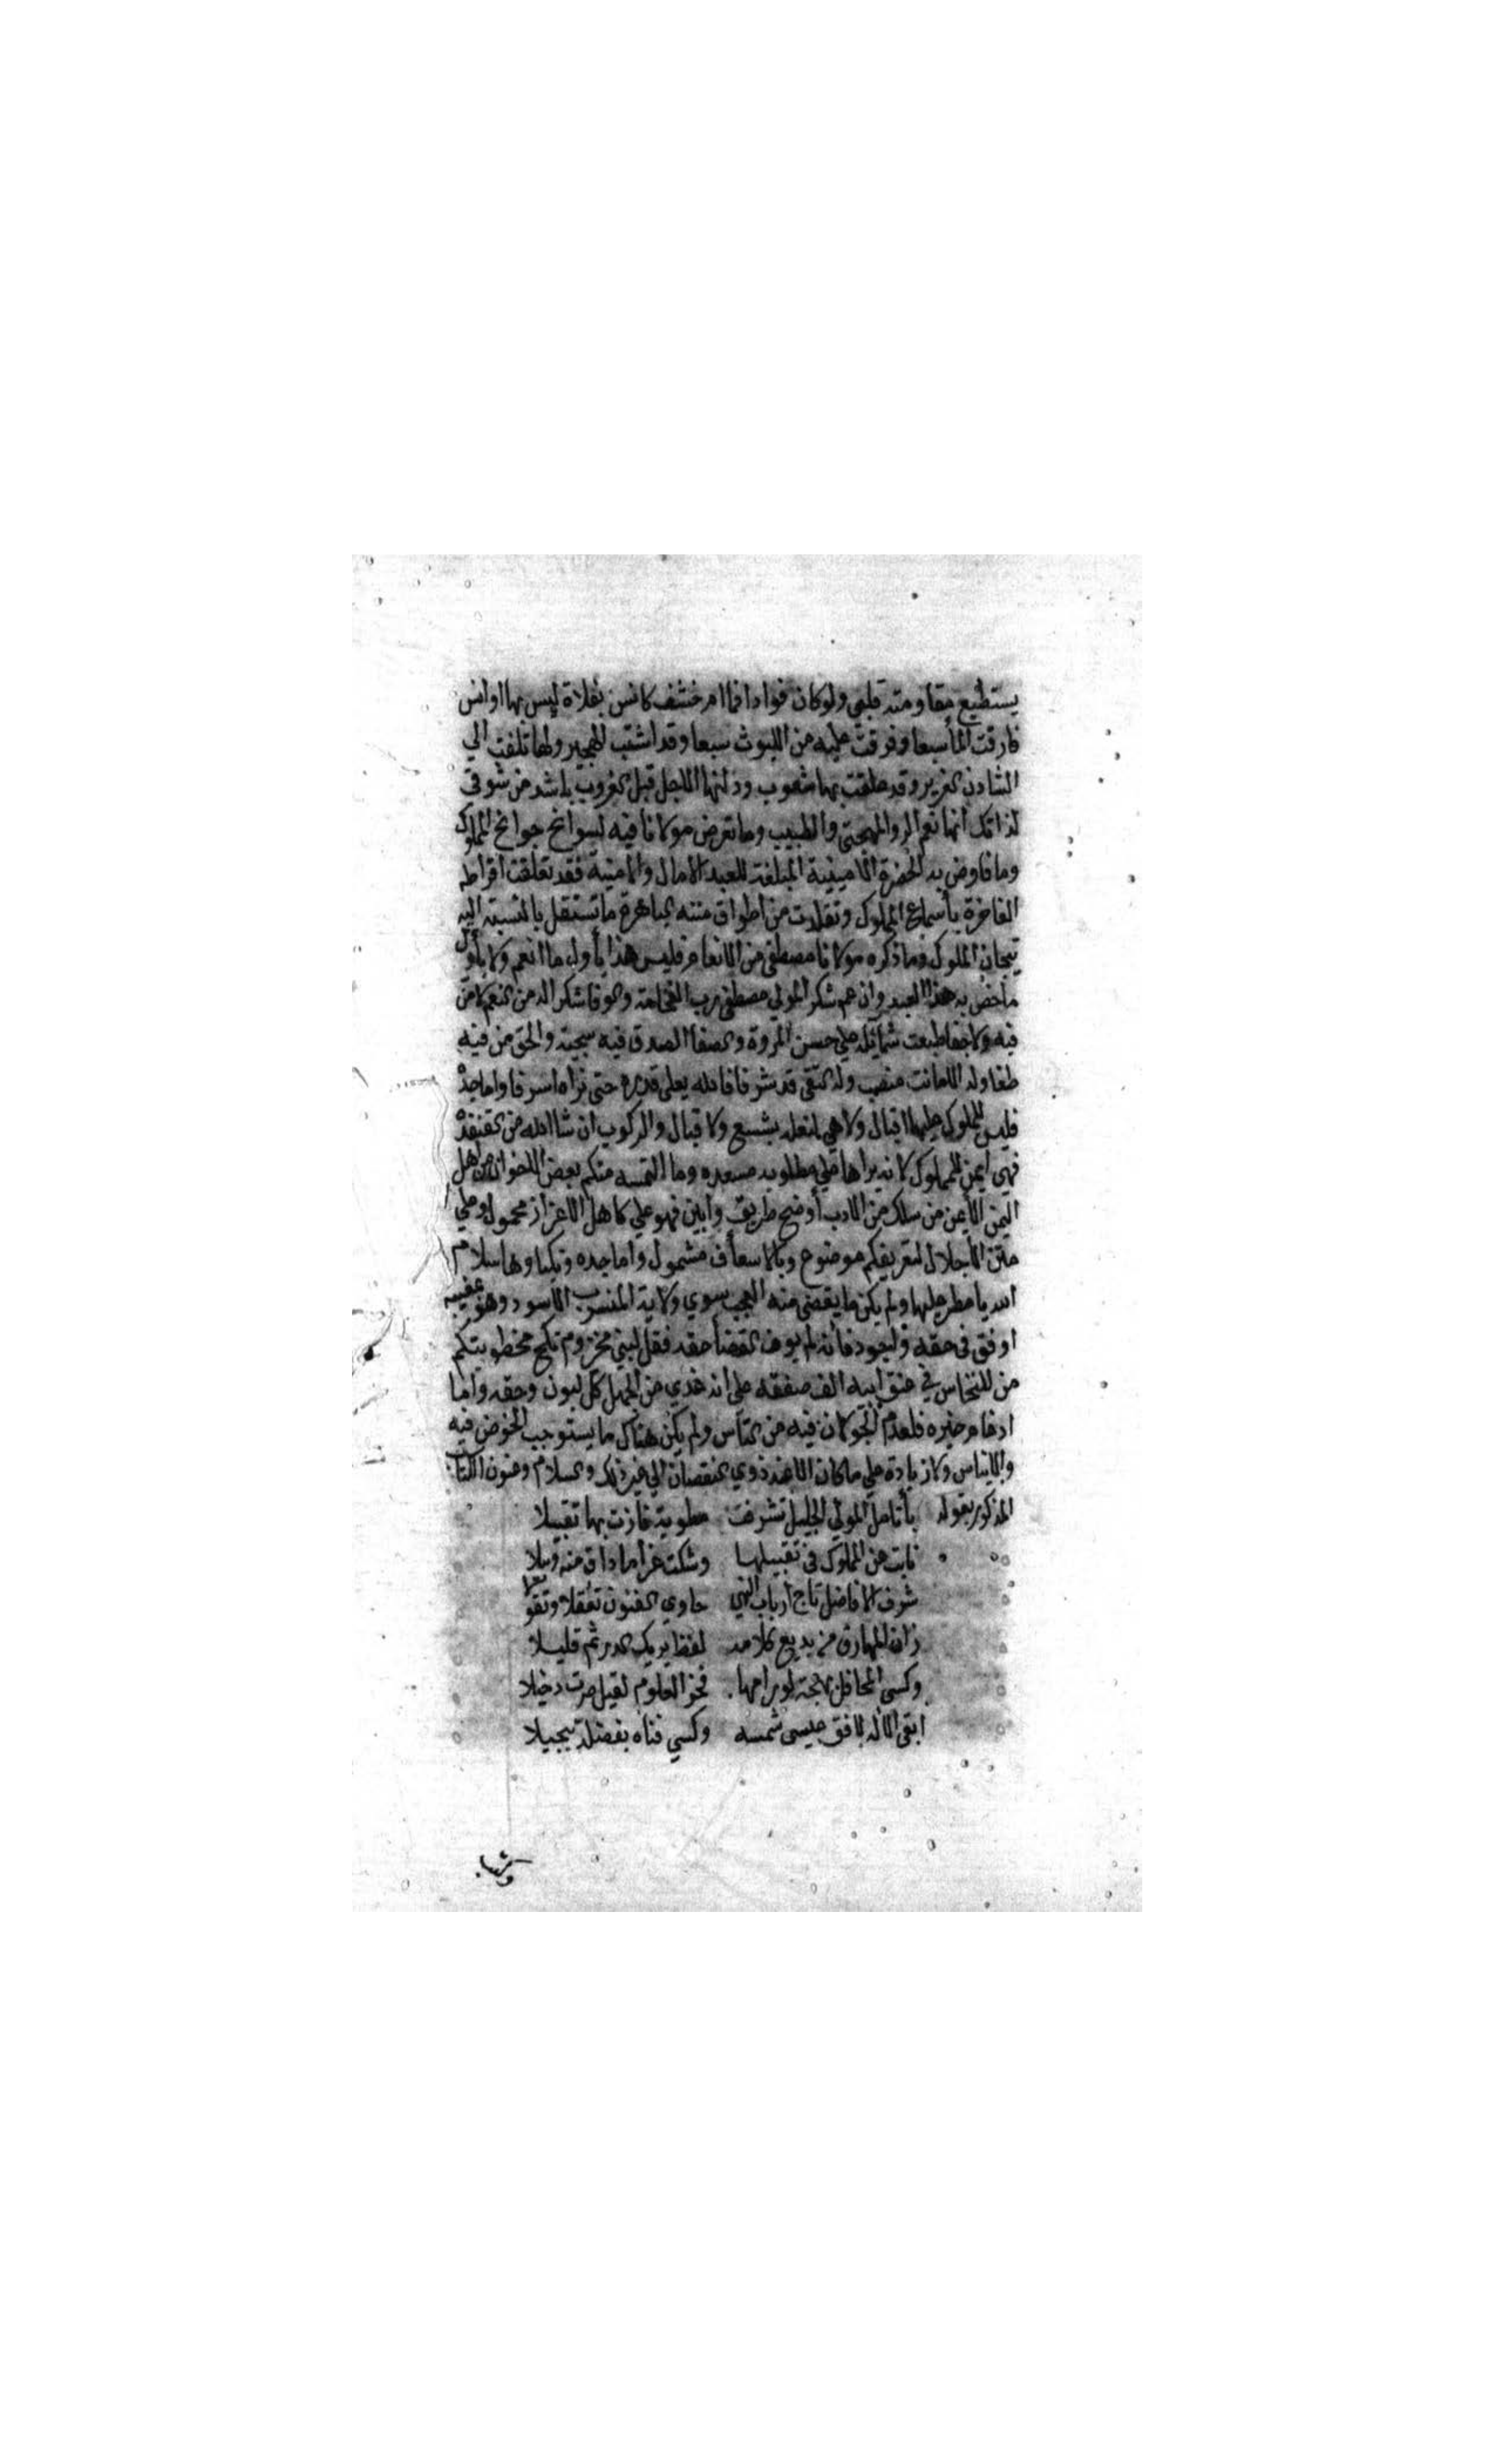 يستطيع مقاومته قلبي ولو كان فوادا فما ام خشف كانس بفلاة ليس بها اوانس
فارقت المأ سبعا وفرقت عليه من الليوث سبعا وقد اشقب الهجير ولها تلفت الي
الشادن الغرير وقد علقت بها شعوب ودلها الاجل قبل الغروب باشد من شوقي
لذاتك انها نعم الروالمهجتي والطبيب وما تعرض مولانا فيه لسوانح جوانح المملوك
وما فاوض به الحضرة الامينية المبلغة للعبد الامال والامنية فقد تعلقت اقراطه
الفاخرة بأسماع المملوك وتقلدت من اطواق مننه الباهرة ما تستقل بالنسبة اليه
تيجان الملوك وما ذكره مولانا مصطفى من الانعام فليس هذا بأول ما انعم ولا بأول
ما خص به هذا العبد وان عم شكر المولي مصطفى رب الفخامة والوفا شكر الدمن النعم لا من
فيه ولا جفا طبعت شمائله علي حسن المروة والصفا الصدق فيه سجية والحق من فيه
طفا وله الامانت منصب وله التقى قد شرفا فالله يعلي قدره حتى نراه اسرفا واما جدة
فليس للملوك عليها اقبال ولا هي لنعله بشسع ولا قبال والركوب ان شاالله من القنفدة
فهي ايمن للمملوك لانه يراها علي مطلوبه مسعده وما التمسه منكم بعض الاخوان من اهل
اليمن الأيمن من سلك من الادب أوضح طريق وأبين فهو علي كاهل الاعزاز محمول وعلي
متن الأجلال لتعريفكم موضوع وبالاسعاف مشمول واما جده وتكبا وها سلام
الله يا مطر عليها ولم يكن ما يقضى منه العجب سوي ولاية المنسرب الاسود وهو عقيبه
اوفق في حقه والجود فأنه لم يوف القضا حقه فقل لبني مخزوم نكح مخطوبتكم
من للنخاس في عنق ابيه الف صفقه علي انه غذي من الجهل كل لبون وحقه واما
ادغام خبره فلعدم الجو كان فيه من الباس ولم يكن هناك ما يستوجب الخوض فيه
والايناس ولا زيادة علي ما كان الا عند ذوي النقصان الي غير ذلك والسلام وعنون الكتاب
المذكور بقوله بأنامل المولي الجليل تشرفت مطوية فازت بها تقبيلا
نابت عن المملوك في تقبيلها وشكت غراما ذاق منه وبيلا
شرف الافاضل تاج أرباب النهي حاوي الفنون تعقلا وتقولا
زان المهارق من بديع كلامه لفظا يريك الدر ثم قليلا
وكسى المحافل بهجة لو رامها فخر العلوم لقيل صرت دخيلا
ابقى الاله لافق عيسى شمسه وكسي فناه بفضله تبجيلا
وكتب